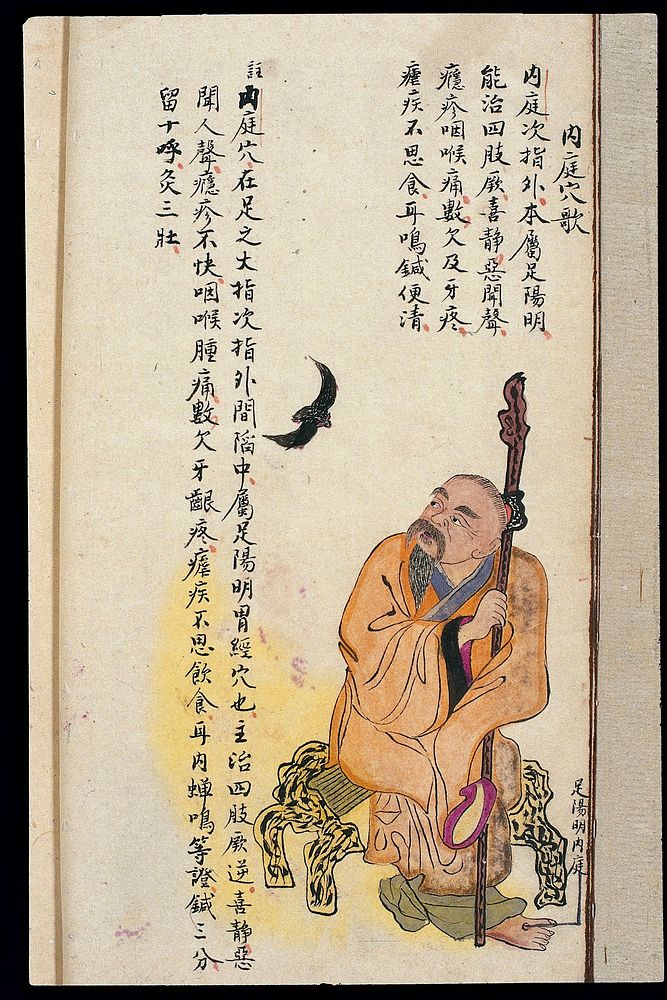 內庭穴歌
內庭次指外本屬足陽明
能治四肢厥喜靜惡聞聲
癮疹咽喉痛數欠及牙疼
瘧疾不思食耳鳴鍼便清
註內庭穴在足之大指次指外間陷中屬足陽明胃經穴也主治四肢厥逆喜靜惡
聞人聲癮疹不快咽喉腫痛數欠牙齦疼瘧疾不思飲食耳內蟬鳴等證鍼三分
留十呼灸三壯
足陽明內庭